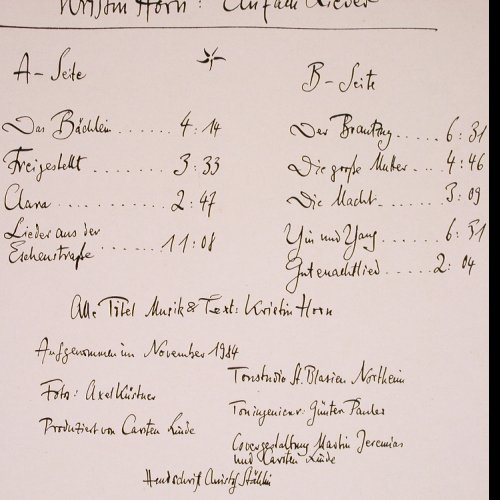 Kristin Horn: Einfach Lieder
A-Seite
Das Bächlein ...... 4:14
Freigestellt ...... 3:33
Clara ...... 2:47
Lieder aus der
Eschenstraße ...... 11:08
B-Seite
Der Brautzug ..... 6:31
Die große Mutter ... 4:46
Die Macht ..... 3:09
Yin und Yang ..... 6:31
Gutenachtlied ..... 2:04
Alle Titel Musik & Text: Kristin Horn
Aufgenommen im November 1984
Tonstudio St. Blasien Northeim
Foto: Axel Küstner
Toningenieur: Günter Pauler
Produziert von Carsten Linde
Covergestaltung Martin Jeremias
und Carsten Linde
Handschrift Christof Stählin